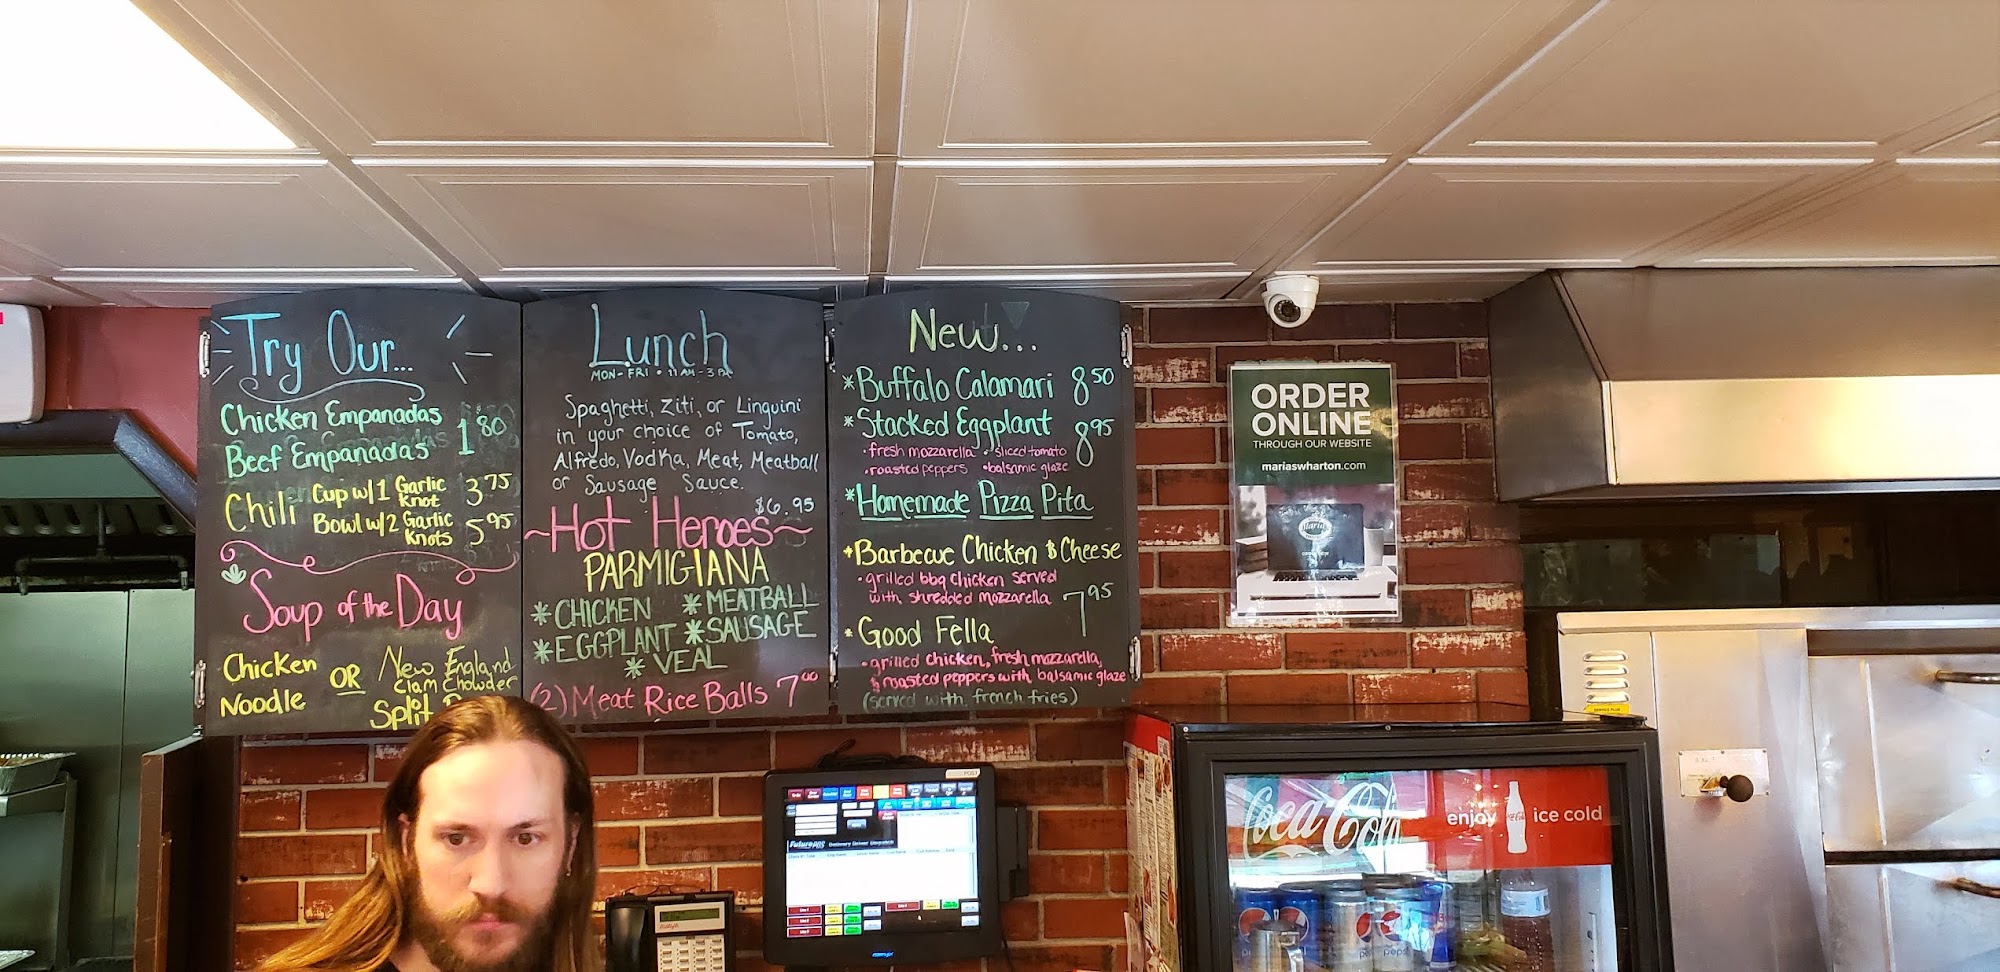 Try Our...
Chicken Empanadas
Beef Empanadas
1.80
Chili Cup w/1 Garlic Knot 3.75
Bowl w/2 Garlic Knots 5.95
Soup of the Day
Chicken Noodle
OR
New England Clam Chowder
Split
Lunch
MON-FRI • 11AM-3
Spaghetti, Ziti, or Linguini
in your choice of Tomato,
Alfredo, Vodka, Meat, Meatball
or Sausage Sauce.
$6.95
~Hot Heroes~
PARMIGIANA
*CHICKEN *MEATBALL
*EGGPLANT *SAUSAGE
*VEAL
(2) Meat Rice Balls 7.00
New...
*Buffalo Calamari 8.50
*Stacked Eggplant 8.95
•fresh mozzarella •sliced tomato
•roasted peppers •balsamic glaze
*Homemade Pizza Pita
*Barbecue Chicken & Cheese
•grilled bbq chicken served
with shredded mozzarella
7.95
*Good Fella
•grilled chicken, fresh mozzarella,
& roasted peppers with balsamic glaze
(served with french fries)
ORDER
ONLINE
THROUGH OUR WEBSITE
mariaswharton.com
Maria's
FuturePOS
Coca Cola
enjoy
ice cold
pepsi